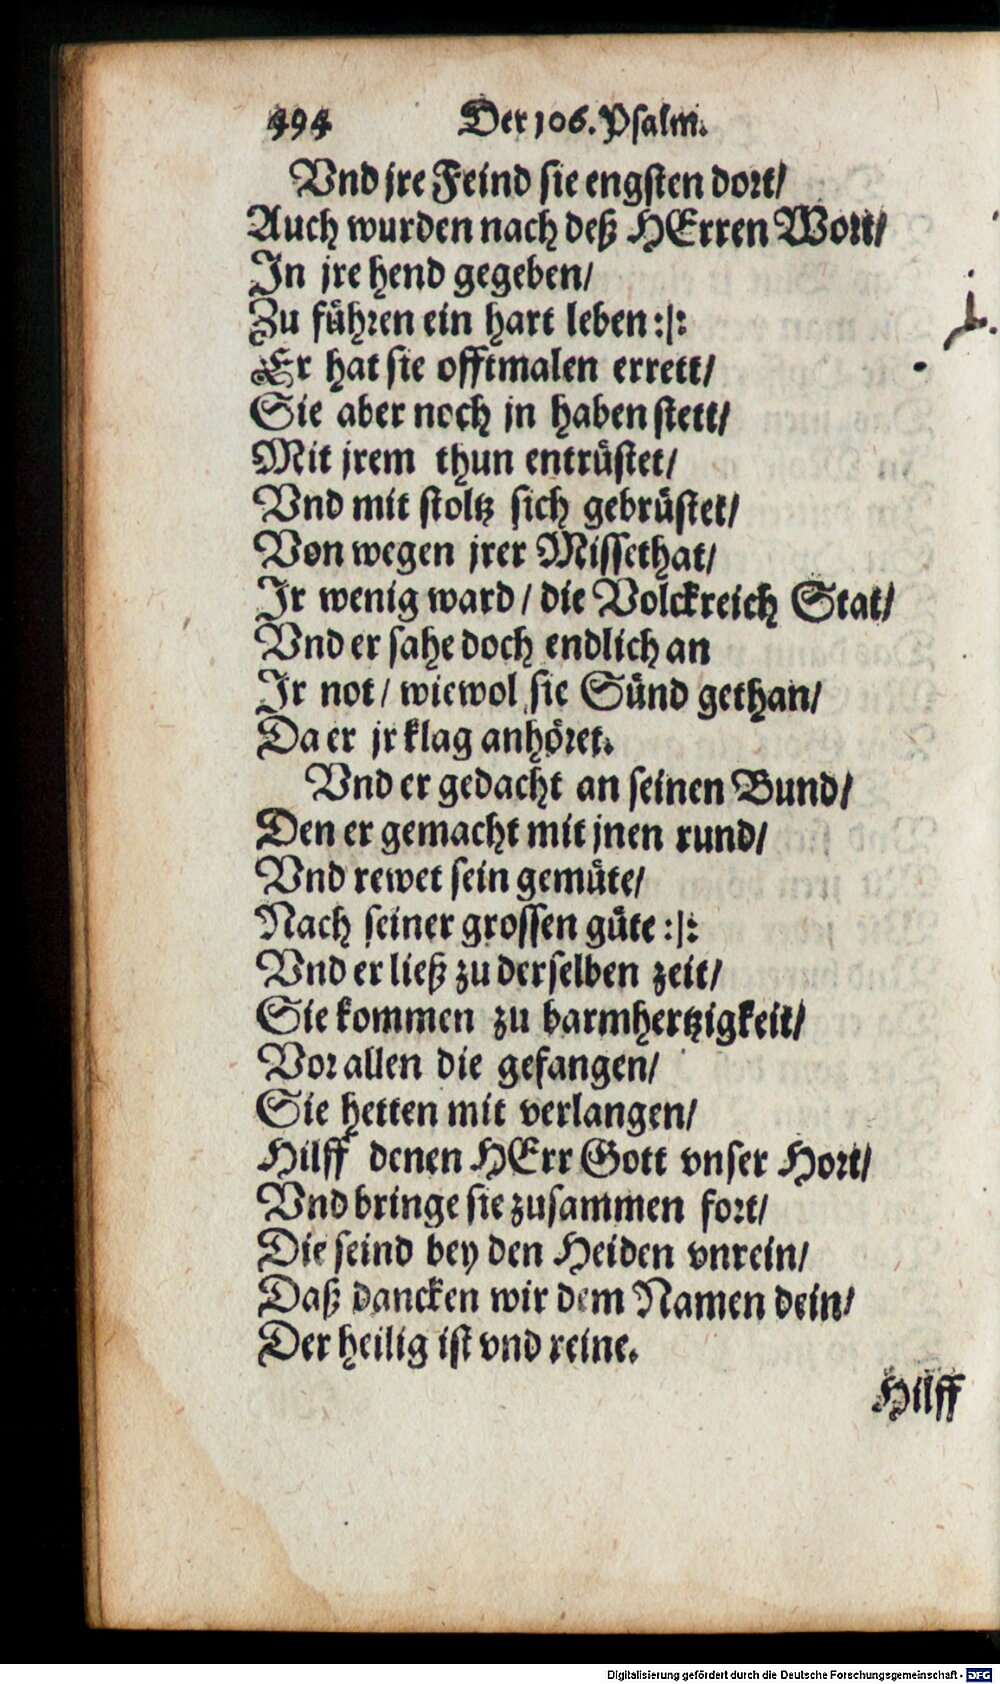 494 Der 106. Psalm.
Vnd jre Feind sie engsten dort/
Auch wurden nach deß HErren Wort/
In jre hend gegeben/
Zu führen ein hart leben :|:
Er hat sie offtmalen errett/
Sie aber noch jn haben stett/
Mit jrem thun entrüstet/
Vnd mit stoltz sich gebrüstet/
Von wegen jrer Missethat/
Ir wenig ward / die Volckreich Stat/
Vnd er sahe doch endlich an
Ir not / wiewol sie Sünd gethan/
Da er jr klag anhöret.
Vnd er gedacht an seinen Bund/
Den er gemacht mit jnen rund/
Vnd rewet sein gemüte/
Nach seiner grossen güte :|:
Vnd er ließ zu derselben zeit/
Sie kommen zu barmhertzigkeit/
Vor allen die gefangen/
Sie hetten mit verlangen/
Hilff denen HErr Gott vnser Hort/
Vnd bringe sie zusammen fort/
Die seind bey den Heiden vnrein/
Daß dancken wir dem Namen dein/
Der heilig ist vnd reine.
Hilff
Digitalisierung gefördert durch die Deutsche Forschungsgemeinschaft - DFG